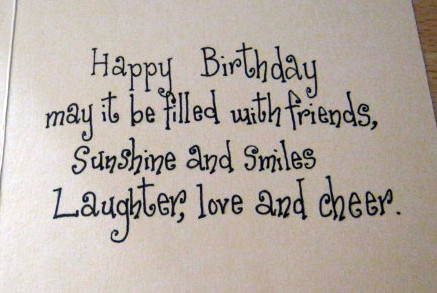 Happy Birthday
may it be filled with friends,
Sunshine and Smiles
Laughter, love and cheer.